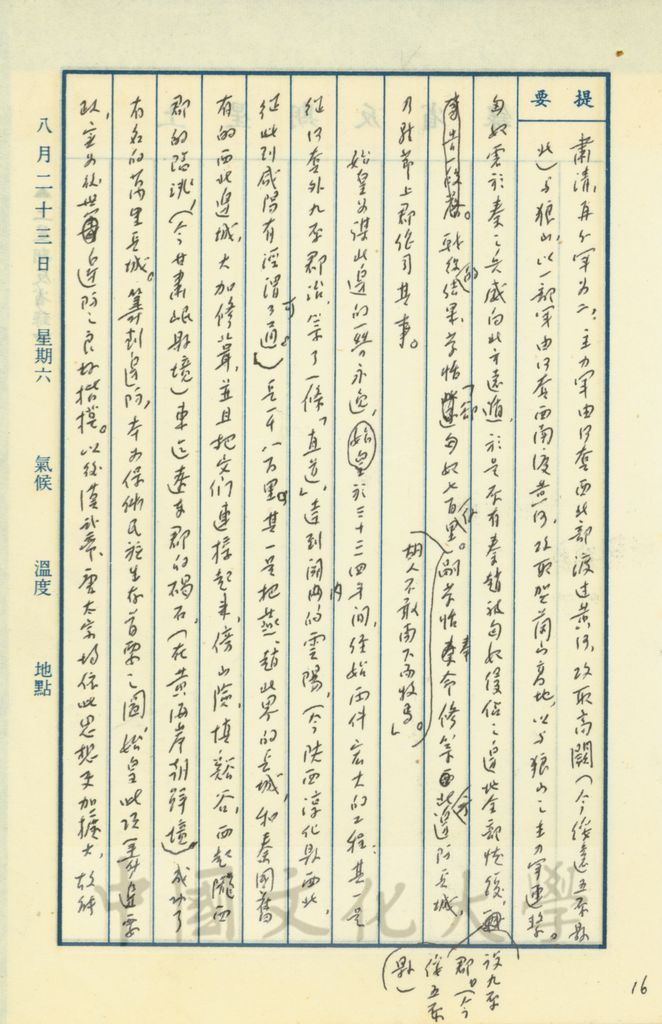 提要
肅清,再分軍為二:主力軍由河套西北部渡過黃河,攻取高闕(今綏遠五原縣
北)與狼山,以一部軍由河套西南渡黃河,攻取賀蘭山高地,以與狼山之主力軍連繫。
匈奴震於秦之兵威向北方遠遁,於是原有秦趙被匈奴侵佔之邊地全部恢復,
設九原郡(今綏五原縣)
事告一段落。戰役的結果,蒙恬「卻匈奴七百里。嗣蒙恬奉命修築西北邊防長城,
胡人不敢南下而牧馬」。
乃駐節上郡作司其事。
始皇為謀北邊的一勞永逸,始皇於三十三四年間,經始兩件宏大的工程:其一是
從河套外九原郡治,築了一條「直道」,達到關內的雲陽,(今陝西淳化縣西北,
從此到咸陽有涇渭可通。)長一千八百里。其一是把燕、趙北界的長城,和秦國舊
有的西北邊城,大加修葺,並且把它們連接起來,傍山險,填谿谷,西起隴西
郡的臨洮(今甘肅岷縣境)東迄遼東郡的碣石,(在黃海岸朝鮮境)成功了
有名的萬里長城。籌對邊防,本為保衛民族生存首要之圖,始皇此項籌邊要
政,實為後世邊防之良好楷模。以後漢武帝、唐太宗均依此思想更加擴大,故能
八月二十三日 星期六 氣候 溫度 地點
16
中國文化大學